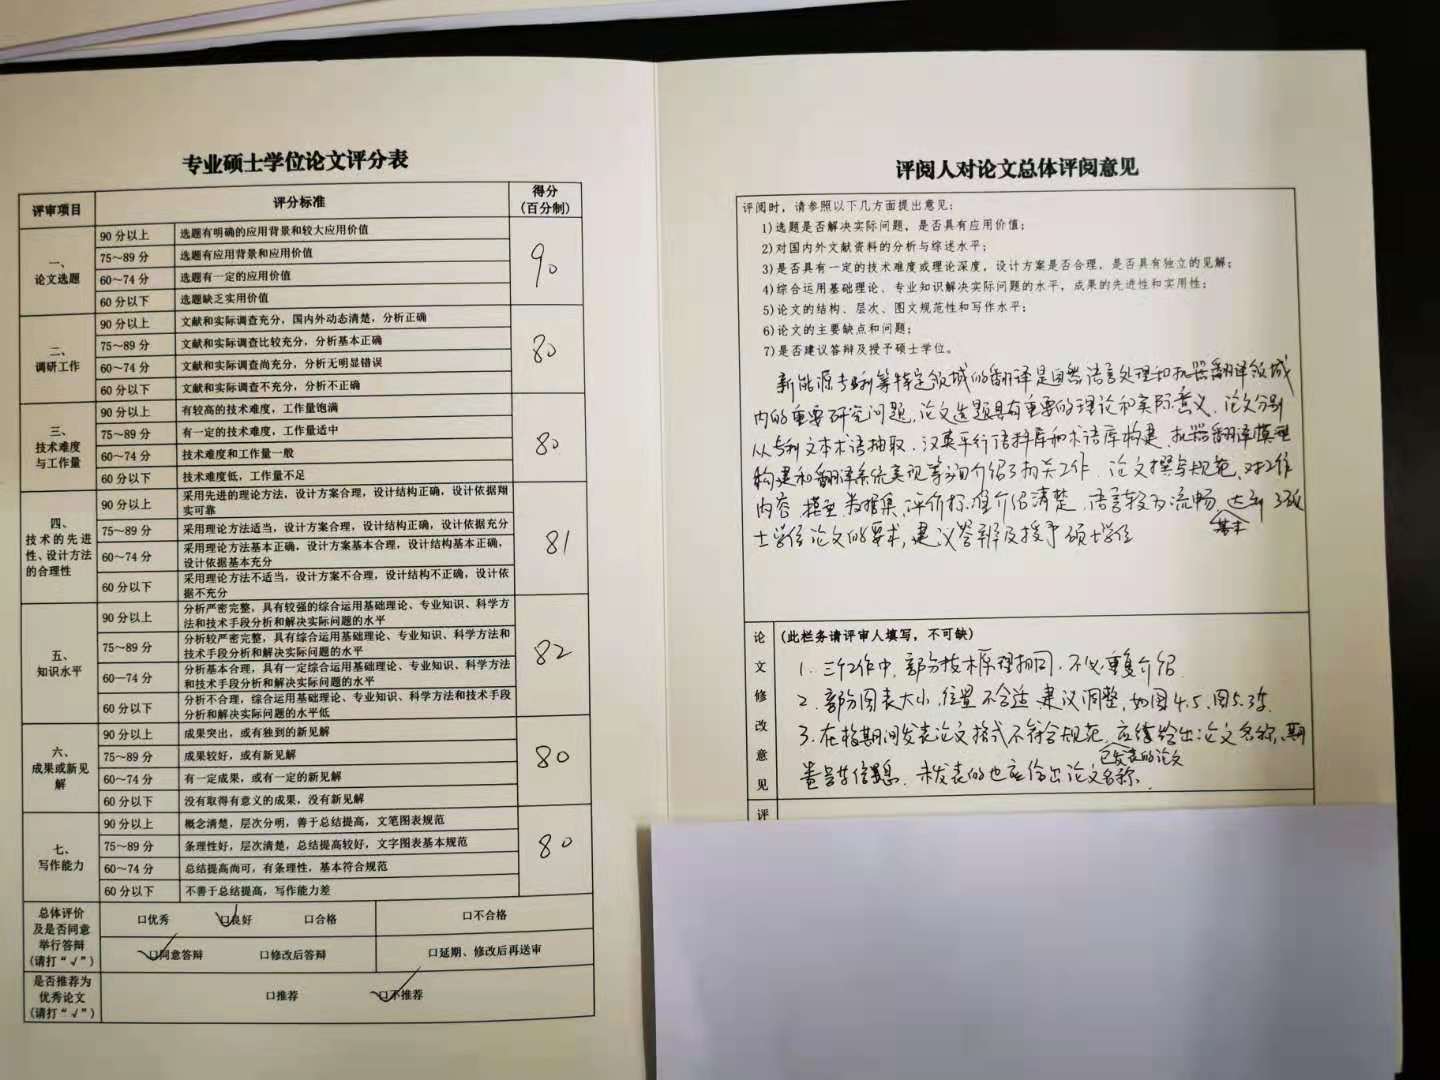 专业硕士学位论文评分表
评审项目 评分标准 得分(百分制)
一、论文选题 90
90 分以上 选题有明确的应用背景和较大应用价值
75～89 分 选题有应用背景和应用价值
60～74 分 选题有一定的应用价值
60 分以下 选题缺乏实用价值
二、调研工作 80
90 分以上 文献和实际调查充分，国内外动态清楚，分析正确
75～89 分 文献和实际调查比较充分，分析基本正确
60～74 分 文献和实际调查尚充分，分析无明显错误
60 分以下 文献和实际调查不充分，分析不正确
三、技术难度与工作量 80
90 分以上 有较高的技术难度，工作量饱满
75～89 分 有一定的技术难度，工作量适中
60～74 分 技术难度和工作量一般
60 分以下 技术难度低，工作量不足
四、技术的先进性、设计方法的合理性 81
90 分以上 采用先进的理论方法，设计方案合理，设计结构正确，设计依据翔实可靠
75～89 分 采用理论方法适当，设计方案合理，设计结构正确，设计依据充分
60～74 分 采用理论方法基本正确，设计方案基本合理，设计结构基本正确，设计依据基本充分
60 分以下 采用理论方法不适当，设计方案不合理，设计结构不正确，设计依据不充分
五、知识水平 82
90 分以上 分析严密完整，具有较强的综合运用基础理论、专业知识、科学方法和技术手段分析和解决实际问题的水平
75～89 分 分析较严密完整，具有综合运用基础理论、专业知识、科学方法和技术手段分析和解决实际问题的水平
60—74 分 分析基本合理，具有一定综合运用基础理论、专业知识、科学方法和技术手段分析和解决实际问题的水平
60 分以下 分析不合理，综合运用基础理论、专业知识、科学方法和技术手段分析和解决实际问题的水平低
六、成果或新见解 80
90 分以上 成果突出，或有独到的新见解
75～89 分 成果较好，或有新见解
60～74 分 有一定成果，或有一定的新见解
60 分以下 没有取得有意义的成果，没有新见解
七、写作能力 80
90 分以上 概念清楚，层次分明，善于总结提高，文笔图表规范
75～89 分 条理性好，层次清楚，总结提高较好，文字图表基本规范
60～74 分 总结提高尚可，有条理性，基本符合规范
60 分以下 不善于总结提高，写作能力差
总体评价及是否同意举行答辩(请打“√”)
口优秀 口良好 口合格 口不合格
口同意答辩 口修改后答辩 口延期、修改后再送审
是否推荐为优秀论文(请打“√”)
口推荐 口不推荐
评阅人对论文总体评阅意见
评阅时，请参照以下几方面提出意见：
1)选题是否解决实际问题，是否具有应用价值；
2)对国内外文献资料的分析与综述水平；
3)是否具有一定的技术难度或理论深度，设计方案是否合理，是否具有独立的见解；
4)综合运用基础理论、专业知识解决实际问题的水平，成果的先进性和实用性；
5)论文的结构、层次、图文规范性和写作水平；
6)论文的主要缺点和问题；
7)是否建议答辩及授予硕士学位。
新能源专利等特定领域的翻译是自然语言处理和机器翻译领域
内的重要研究问题，论文选题具有重要的理论和实际意义。论文分别
从专利文本术语抽取、汉英平行语料库和术语库构建、机器翻译模型
构建和翻译系统实现等方面介绍了相关工作。论文撰写规范，对工作
内容、模型、数据集、评价标准介绍清楚，语言较为流畅，基本达到了硕
士学位论文的要求，建议答辩及授予硕士学位
论文修改意见
(此栏务请评审人填写，不可缺)
1. 三个工作中，部分技术原理相同，不必重复介绍
2. 部分图表大小、位置不合适，建议调整，如图4.5，图5.3等
3. 在校期间发表论文格式不符合规范，已发表的论文应给出论文名称、期
卷号等信息，未发表的也应给出论文名称.
评